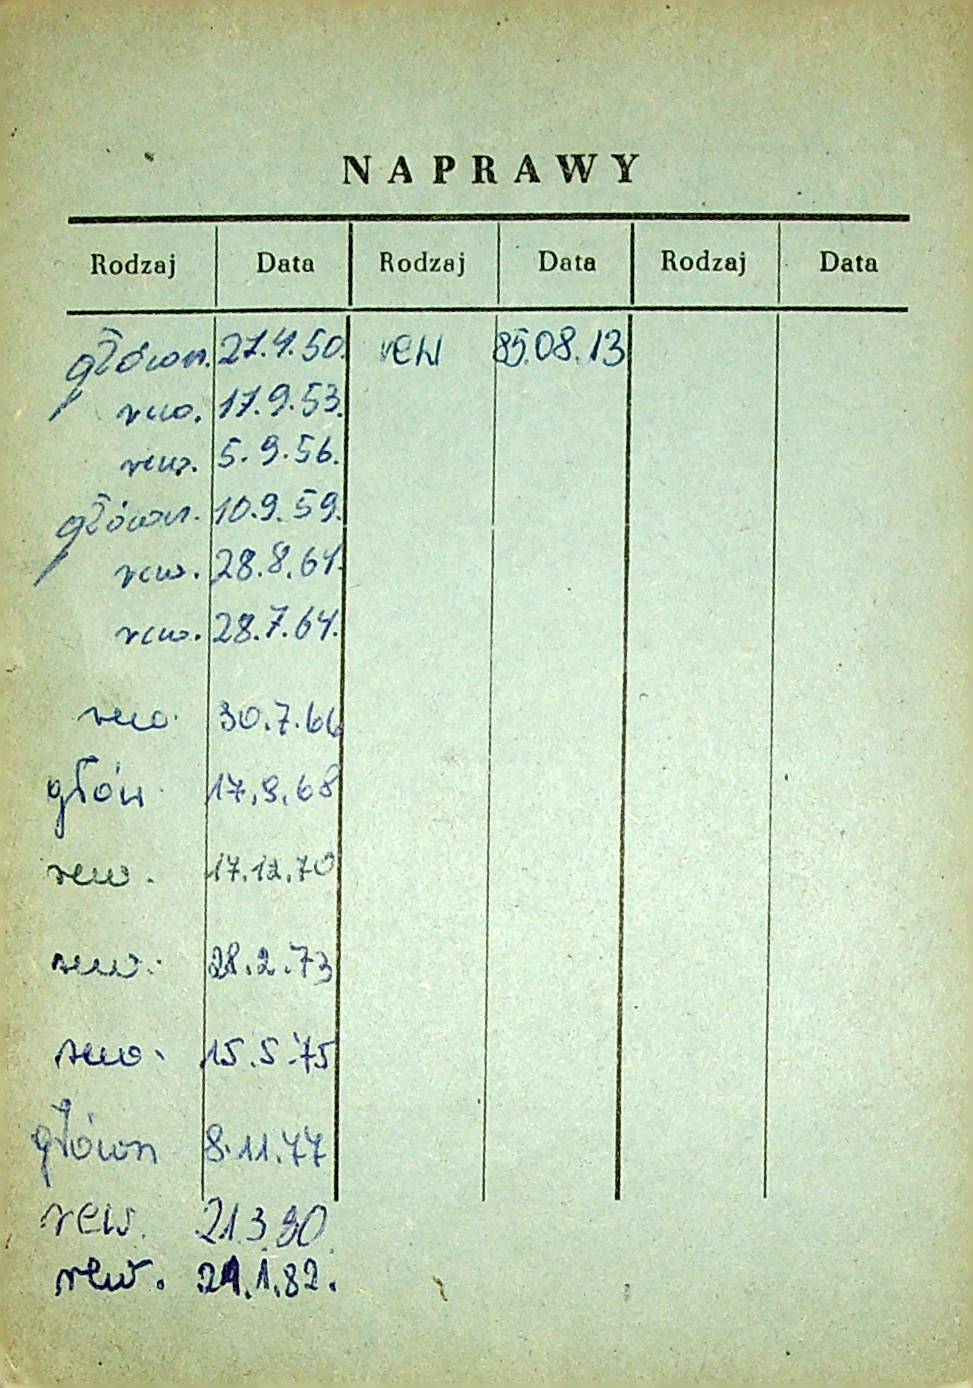 NAPRAWY
Rodzaj Data Rodzaj Data Rodzaj Data
główn. 27.4.50. rew 85.08.13
rew. 17.9.53.
rew. 5.9.56.
główn. 10.9.59.
rew. 28.8.61.
rew. 28.7.64.
rew. 30.7.66
głów 17.9.68
rew. 17.12.70
rew. 28.2.73
rew. 15.5.75
główn 8.11.77
rew. 21.3.80
rew. 29.1.82.